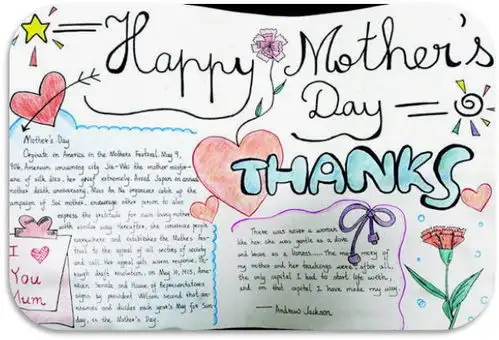 Happy Mother's
Day
THANKS
Mother's Day
Originate in America in the Mothers Festival. May 9,
906, American consuming city, Jia-Wei the mother
of silk dies, her grief extremely.
mother death anniversary, Miss An Na organizer catch up the
campaign of Sai mother, encourage other person to also
express the gratitude for own loving mother
with similar way. Hereafter, she canvasses people
everywhere and establishes the Mothers Fes-
tival to the appeal of all sectors of society
and call, her appeal gets warm response. Th-
rough draft resolution, on May 10, 1913, Ame-
rican Senate and House of Representatives
signs by president Wilson, second that an-
nounces and divides each year's May for Sun-
day, is the Mother's Day.
I
You
Mum
There was never a woman
like her. she was gentle as a dove
and brave as a lioness.... The memory of
my mother and her teachings were, after all,
the only capital I had to start life with,
and on that capital, I have made my way.
—— Andrew Jackson